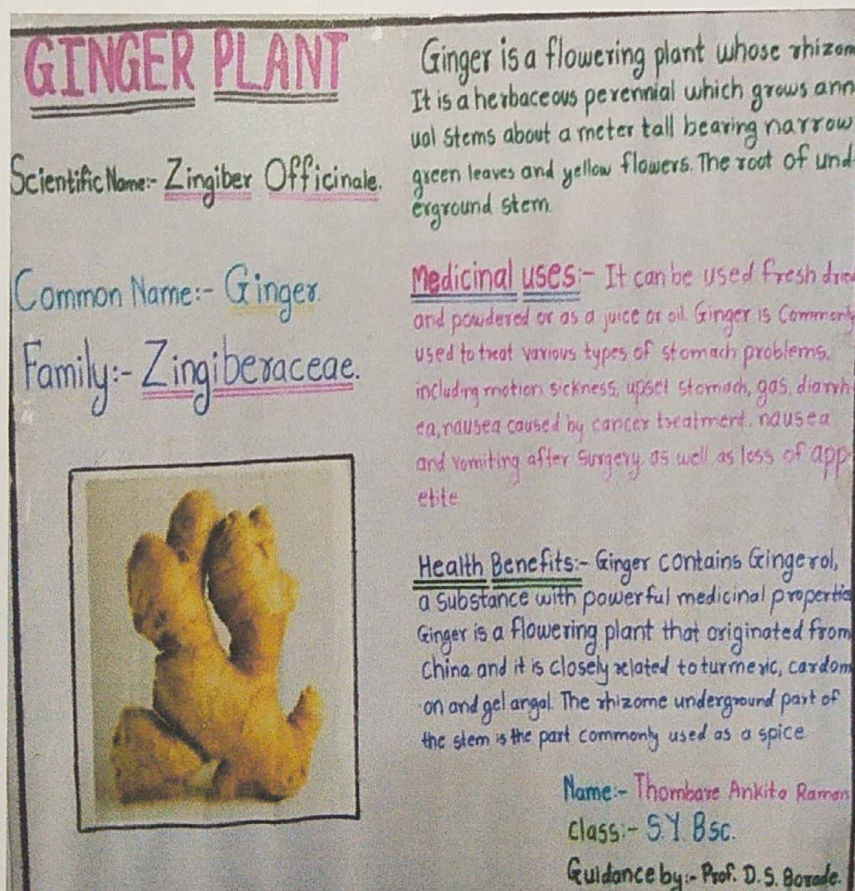 GINGER PLANT
Scientific Name:- Zingiber Officinale.
Common Name:- Ginger
Family:- Zingiberaceae.
Ginger is a flowering plant whose rhizom
It is a herbaceous perennial which grows ann
ual stems about a meter tall bearing narrow
green leaves and yellow flowers. The root of und
erground stem.
Medicinal uses:- It can be used fresh dried
and powdered or as a juice or oil. Ginger is Commonly
used to treat various types of stomach problems.
including motion sickness, upset stomach, gas, diarrh
ea, nausea caused by cancer treatment. nausea
and vomiting after surgery. as well as loss of app
etite.
Health Benefits:- Ginger contains Gingerol,
a substance with powerful medicinal propertie
Ginger is a flowering plant that originated from
China and it is closely related to turmeric, cardom
on and gel angal. The rhizome underground part of
the stem is the part commonly used as a spice
Name:- Thombare Ankita Raman
Class:- S.Y. Bsc.
Guidance by:- Prof. D. S. Borade.